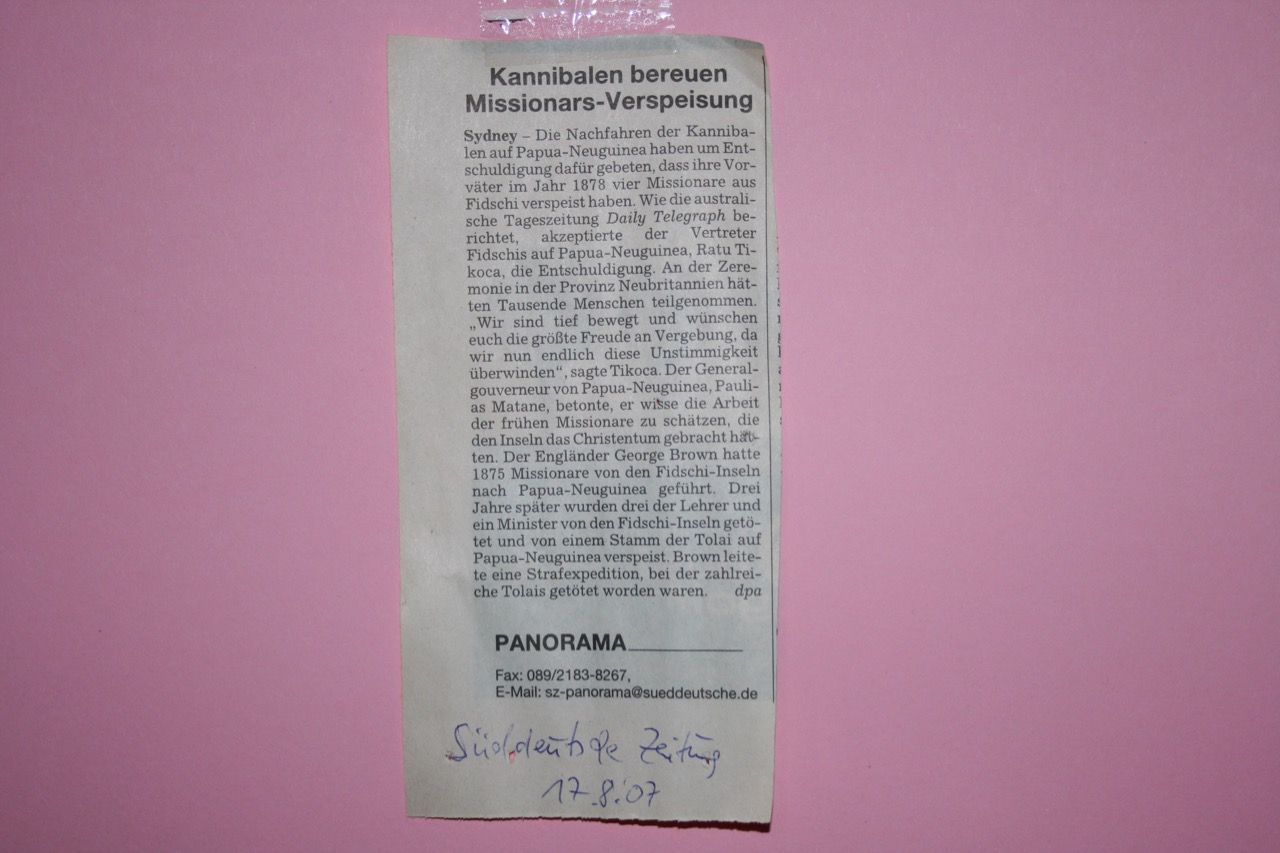 Kannibalen bereuen
Missionars-Verspeisung
Sydney – Die Nachfahren der Kanniba-
len auf Papua-Neuguinea haben um Ent-
schuldigung dafür gebeten, dass ihre Vor-
väter im Jahr 1878 vier Missionare aus
Fidschi verspeist haben. Wie die australi-
sche Tageszeitung Daily Telegraph be-
richtet, akzeptierte der Vertreter
Fidschis auf Papua-Neuguinea, Ratu Ti-
koca, die Entschuldigung. An der Zere-
monie in der Provinz Neubritannien hät-
ten Tausende Menschen teilgenommen.
„Wir sind tief bewegt und wünschen
euch die größte Freude an Vergebung, da
wir nun endlich diese Unstimmigkeit
überwinden“, sagte Tikoca. Der General-
gouverneur von Papua-Neuguinea, Pauli-
as Matane, betonte, er wisse die Arbeit
der frühen Missionare zu schätzen, die
den Inseln das Christentum gebracht hät-
ten. Der Engländer George Brown hatte
1875 Missionare von den Fidschi-Inseln
nach Papua-Neuguinea geführt. Drei
Jahre später wurden drei der Lehrer und
ein Minister von den Fidschi-Inseln getö-
tet und von einem Stamm der Tolai auf
Papua-Neuguinea verspeist. Brown leite-
te eine Strafexpedition, bei der zahlrei-
che Tolais getötet worden waren. dpa
PANORAMA
Fax: 089/2183-8267,
E-Mail: sz-panorama@sueddeutsche.de
Süddeutsche Zeitung
17.8.07